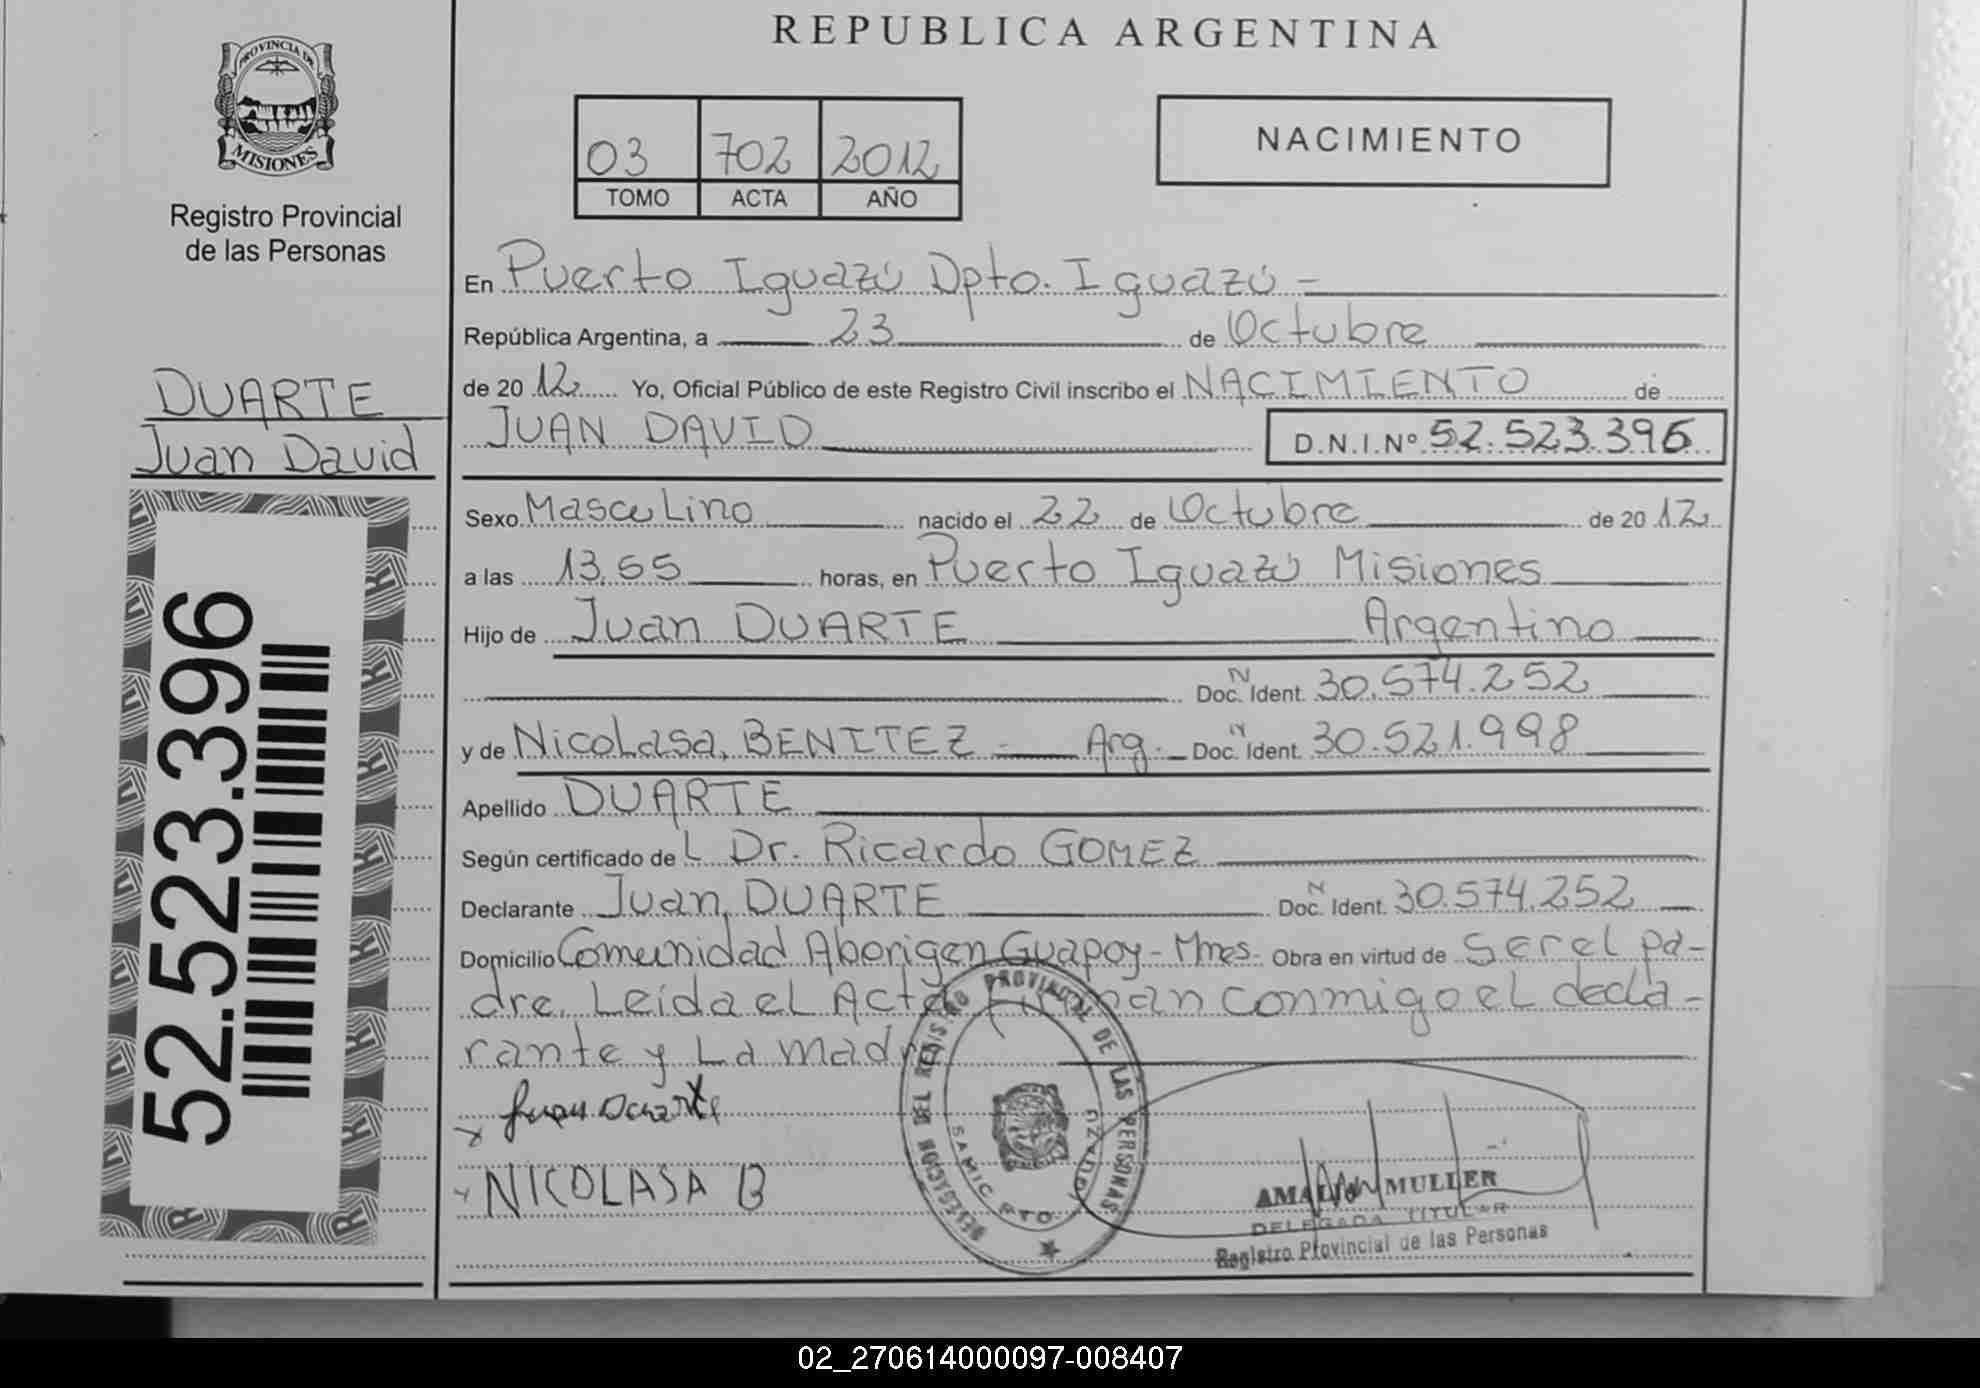 REPUBLICA ARGENTINA
PROVINCIA DE
MISIONES
Registro Provincial
de las Personas
03 702 2012
TOMO ACTA AÑO
NACIMIENTO
En Puerto Iguazú Dpto. Iguazú -
República Argentina, a 23 de Octubre
de 2012 Yo, Oficial Público de este Registro Civil inscribo el NACIMIENTO de
JUAN DAVID D.N.I.Nº 52.523.396
DUARTE
Juan David
52.523.396
Sexo Masculino nacido el 22 de Octubre de 2012
a las 13.55 horas, en Puerto Iguazú Misiones
Hijo de Juan DUARTE Argentino
Doc. N Ident. 30.574.252
y de Nicolasa BENITEZ - Arg. Doc. N Ident. 30.521.998
Apellido DUARTE
Según certificado de L Dr. Ricardo GOMEZ
Declarante Juan DUARTE Doc. N Ident. 30.574.252
Domicilio Comunidad Aborigen Guapoy - Mnes- Obra en virtud de ser el pa-
dre. Leída el Acta Firman conmigo el decla-
rante y La madre
x Juan Duarte
x NICOLASA B
DELEGACION DEL REGISTRO PROVINCIAL DE LAS PERSONAS
SAMIC PTO. IGUAZU
AMALIA MULLER
DELEGADA TITULAR
Registro Provincial de las Personas
02_270614000097-008407